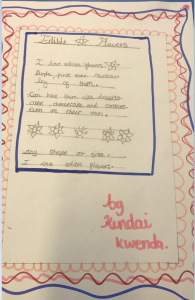 Edible Flowers
I love edible flowers.
Purple, pink even rainbow
Any of them.
Can have them as desserts
cake, cheesecake and cookies
even on their own.
Any shape or size
I love edible flowers.
by
Kundai
Kwenda.